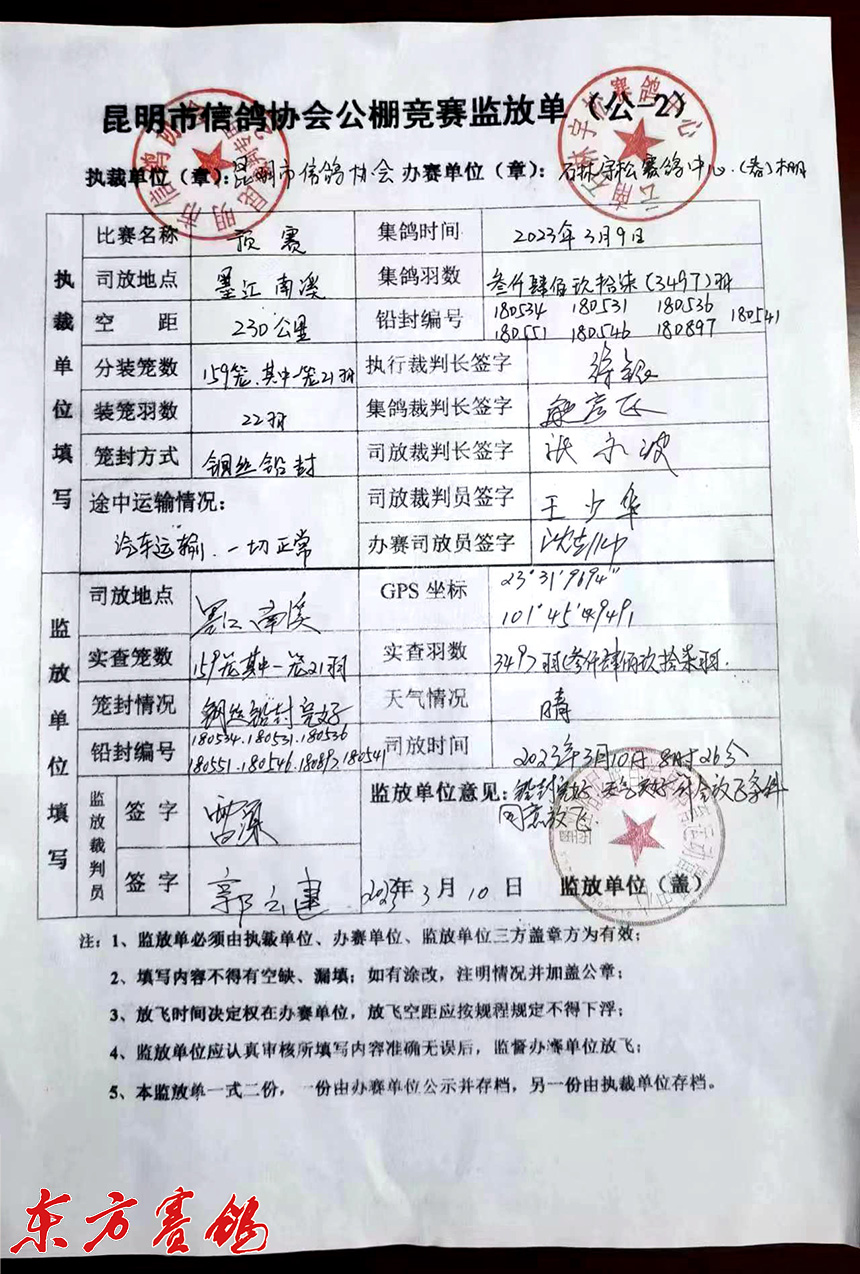 昆明市信鸽协会公棚竞赛监放单（公-2）
执裁单位（章）：昆明市信鸽协会 办赛单位（章）：石林宇松赛鸽中心.(春)棚
执裁单位填写
比赛名称 预赛 集鸽时间 2023年3月9日
司放地点 墨江南溪 集鸽羽数 叁仟肆佰玖拾柒(3497)羽
空 距 230公里 铅封编号 180534 180531 180536 180541
180551 180546 180897
分装笼数 159笼.其中一笼21羽 执行裁判长签字
装笼羽数 22羽 集鸽裁判长签字
笼封方式 钢丝铅封 司放裁判长签字 洪永波
途中运输情况： 司放裁判员签字 王少华
汽车运输.一切正常 办赛司放员签字
监放单位填写
司放地点 墨江南溪 GPS 坐标 23°31′9694″
101°45′49491
实查笼数 159笼其中一笼21羽 实查羽数 3497羽(叁仟肆佰玖拾柒羽.
笼封情况 钢丝铅封完好 天气情况 晴
铅封编号 180534.180531.180536
180551.180546.180897 180541 司放时间 2023年3月10日 8时26分
监放裁判员
签 字 雷深 监放单位意见：铅封完好 天气良好 符合放飞条件
同意放飞.
签 字 郭立建 2023年3月10日 监放单位（盖）
注：1、监放单必须由执裁单位、办赛单位、监放单位三方盖章方为有效；
2、填写内容不得有空缺、漏填；如有涂改，注明情况并加盖公章；
3、放飞时间决定权在办赛单位，放飞空距应按规程规定不得下浮；
4、监放单位应认真审核所填写内容准确无误后，监督办赛单位放飞；
5、本监放单一式二份，一份由办赛单位公示并存档，另一份由执裁单位存档。
东方赛鸽